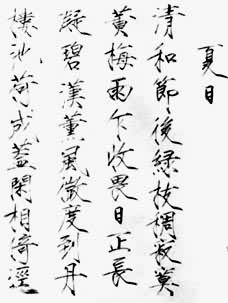 夏日
清和節後綠枝稠寂寞
黃梅雨乍收畏日正長
凝碧漢薰風微度到丹
樓池荷成蓋閑相倚逕